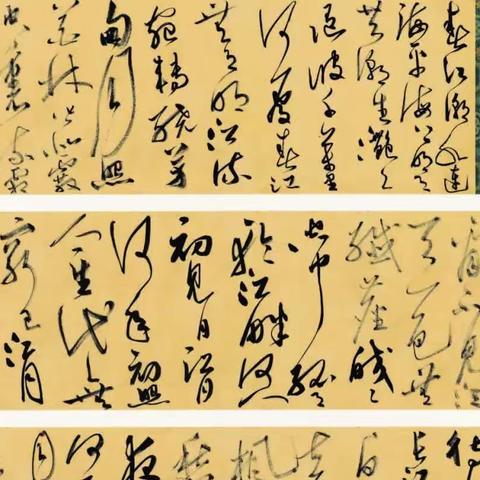 春江潮水連
海平海上明月
共潮生灩灩
隨波千萬里
何處春江
無月明江流
宛轉繞芳
甸月照
花林皆似霰
看不見江
天一色無
纖塵皎皎
空中孤月
輪江畔何人
初見月江月
何年初照
人生代代無
窮已江月
待
長江
白
去
楓
愁
夜
何
月